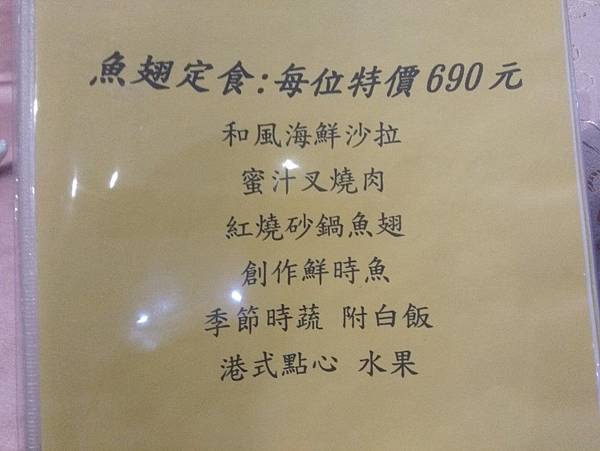 魚翅定食:每位特價690元
和風海鮮沙拉
蜜汁叉燒肉
紅燒砂鍋魚翅
創作鮮時魚
季節時蔬 附白飯
港式點心 水果